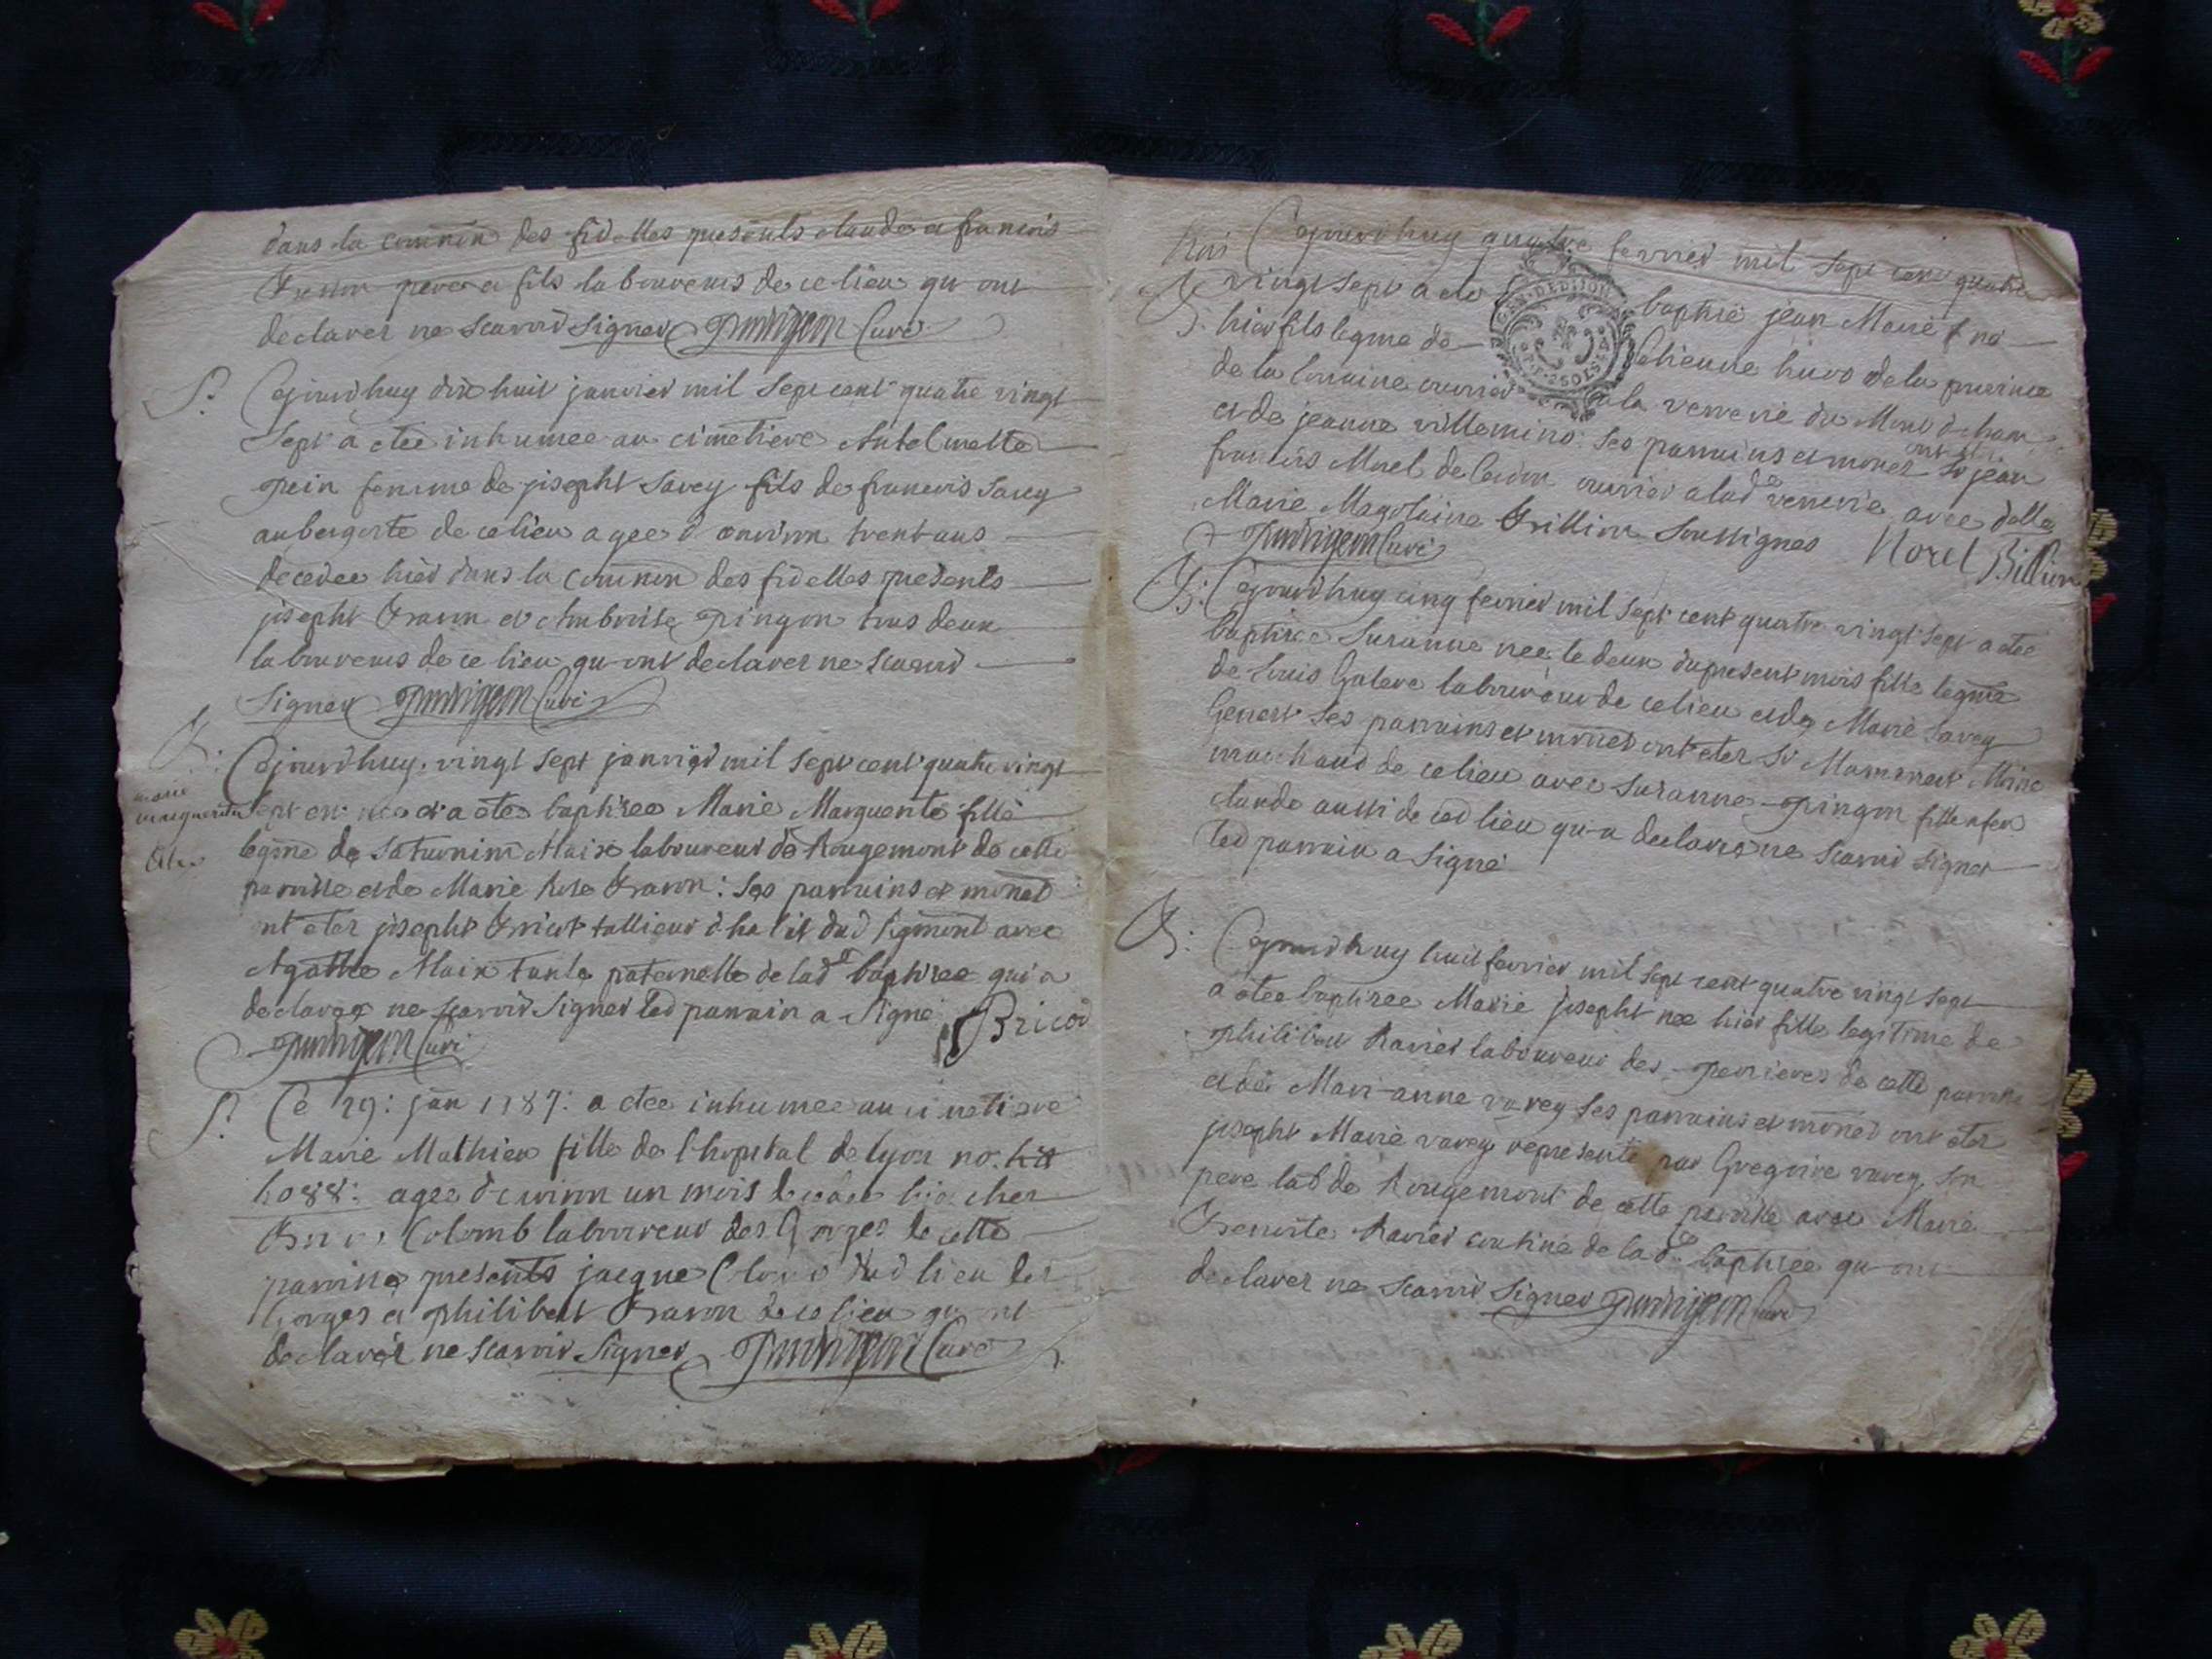 dans la comm̃on des fidelles presents claude et francois
pere et fils laboureurs de ce lieu qu ont
declarer ne scavoir signer Curé
S. Cejourdhuy dix huit janvier mil sept cent quatre vingt
sept à etée inhumee au cimetiere Antelmette
pein femme de joseph Savey fils de francois Savey
aubergiste de ce lieu agee d environ trent ans
decedee hièr dans la comm̃on des fidelles presents
joseph et Ambroise pingon tous deux
laboureurs de ce lieu qu ont declarer ne scavoir
signer Curé
B: Cejourdhuy vingt sept janvier mil sept cent quatre vingt
marie
marguerite
sept est née et a eteé baptisee Marie Marguerite fille
legme de Saturnin Alaix laboureur de Rougemont de cette
paroisse et de Marie : Ses parrains et mones
ont eter joseph tallieur d habit dud avec
Agathe Alaix tante paternelle de lade baptisee qui a
declaree ne scavoir signer led parrain a signé Bricod
Curé
S. Ce 29: jan 1787: a etee inhumee au cimetiere
Marie Mathieu fille de l hopital de lyon no:
6088: agee d environ un mois decedee hier cher
Colomb laboureur des Gorges de cette
paroisse presents jacque dud lieu des
Gorges et philibert de ce lieu qu ont
declarer ne scavoir signer Curé
Cejourdhuy quatre fevrier mil sept cent quatre
B. vingt sept a eté baptisé jean Marie né
GEN. DE DIJON
2 SOLS
hier fils legme de de la province
de la Lorraine ouvrier a la verrerie du
et de jeanne villemino: Ses parrains et mones ont eter Sr jean
francois Morel de ouvrier a lade verrerie avec delle
Marie Magdelaine Billion soussignes Morel Billion
Curé
B: Cejourdhuy cinq fevrier mil sept cent quatre vingt sept a etee
baptisee Suzanne née le deux du present mois fille legme
de Louis Galere laboureur de ce lieu et de Marie Savey
Ses parrains et mones ont eter Sr Mammert Moine
marchand de ce lieu avec Suzanne pingon fille a feu
claude aussi de ced lieu qu a declarer ne scavoir signer
led parrain a signé
B: Cejourdhuy huit fevrier mil sept cent quatre vingt sept
a etee baptisee Marie joseph née hier fille legitime de
philibert Ravier laboureur des perrieres de cette paroisse
et de Mari-anne varey Ses parrains et mones ont eter
joseph Marie varey representé par Gregoire varey son
pere lab de Rougemont de cette paroisse avec Marie
Benoite Ravier cousine de lade baptisee qu ont
declarer ne scavoir signer Curé